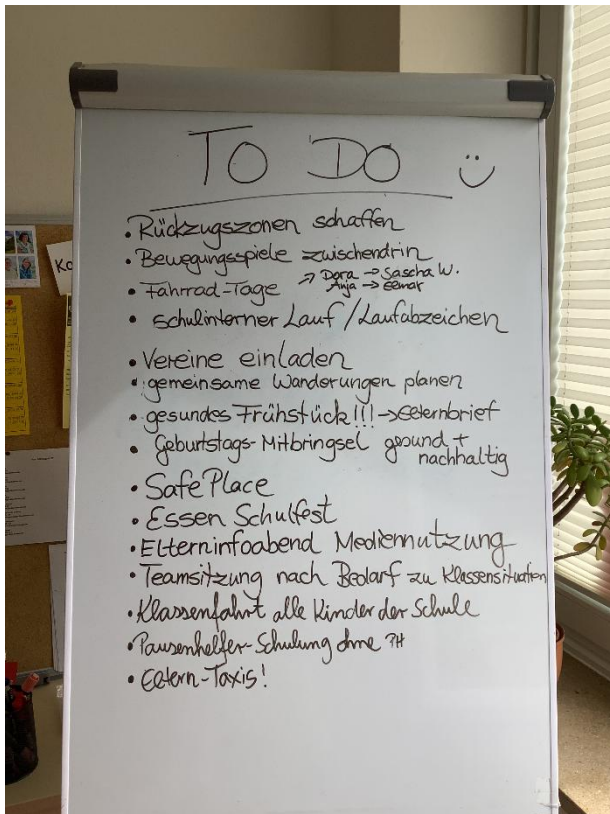 TO DO
• Rückzugszonen schaffen
• Bewegungsspiele zwischendrin
• Fahrrad-Tage → Dora → Sascha W.
Anja → Elmar
• schulinterner Lauf / Laufabzeichen
• Vereine einladen
• gemeinsame Wanderungen planen
• gesundes Frühstück!!! → Elternbrief
• Geburtstags-Mitbringsel gesund +
nachhaltig
• Safe Place
• Essen Schulfest
• Elterninfoabend Mediennutzung
• Teamsitzung nach Bedarf zu Klassensituation
• Klassenfahrt alle Kinder der Schule
• Pausenhelfer-Schulung ohne
• Eltern-Taxis!